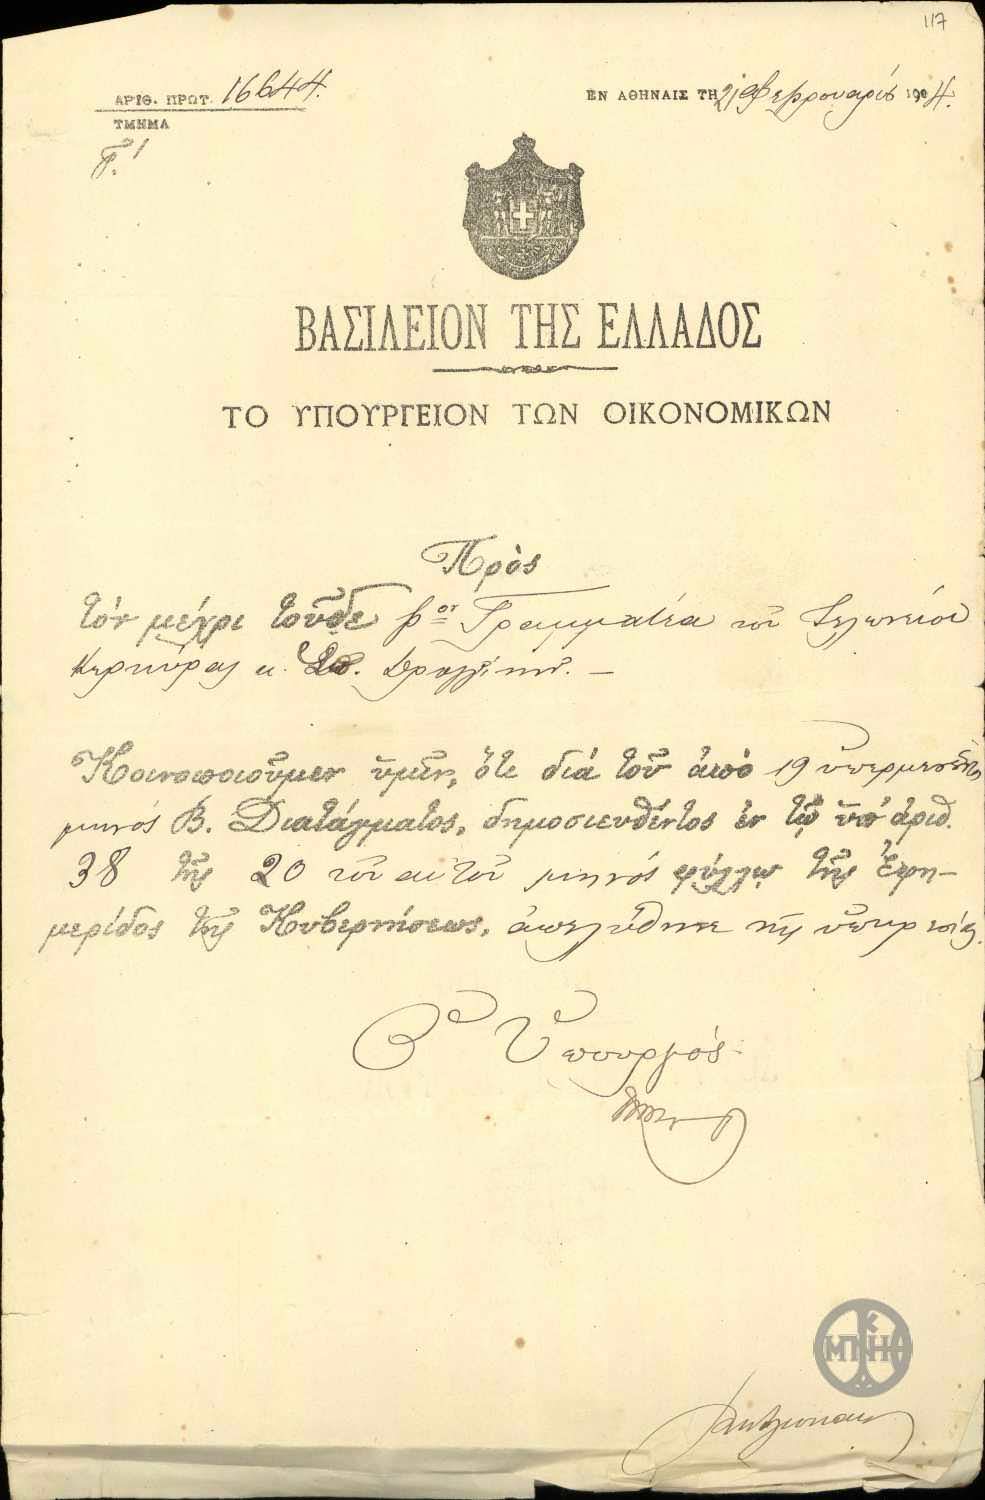 117
ΑΡΙΘ. ΠΡΩΤ. 16644.
ΕΝ ΑΘΗΝΑΙΣ ΤΗ 21 Φεβρουαρίου 1904.
ΤΜΗΜΑ
Γ.'
ΒΑΣΙΛΕΙΟΝ ΤΗΣ ΕΛΛΑΔΟΣ
ΤΟ ΥΠΟΥΡΓΕΙΟΝ ΤΩΝ ΟΙΚΟΝΟΜΙΚΩΝ
Πρὸς
τὸν μέχρι τοῦδε βον Γραμματέα τοῦ Τελωνείου
Κερκύρας κ.
Κοινοποιοῦμεν ὑμῖν, ὅτι διὰ τοῦ ἀπὸ 19 ὑπερμεσοῦντος
μηνὸς Β. Διατάγματος, δημοσιευθέντος ἐν τῷ ὑπ' ἀριθ.
38 τῆς 20 τοῦ αὐτοῦ μηνὸς φύλλῳ τῆς Ἐφη-
μερίδος τῆς Κυβερνήσεως, ἀπελύθητε τῆς ὑπηρεσίας.
Ὁ Ὑπουργός
ΜΠΚΗ